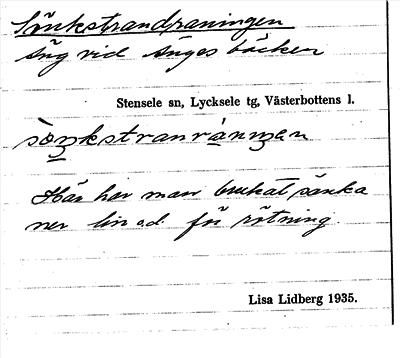 Sänkstrandraningen
äng vid Ånges bäcken
Stensele sn, Lycksele tg, Västerbottens l.
sä̀ŋkstranrà̱nıŋen
Här har man brukat sänka
ner lin o.d. för rötning.
Lisa Lidberg 1935.